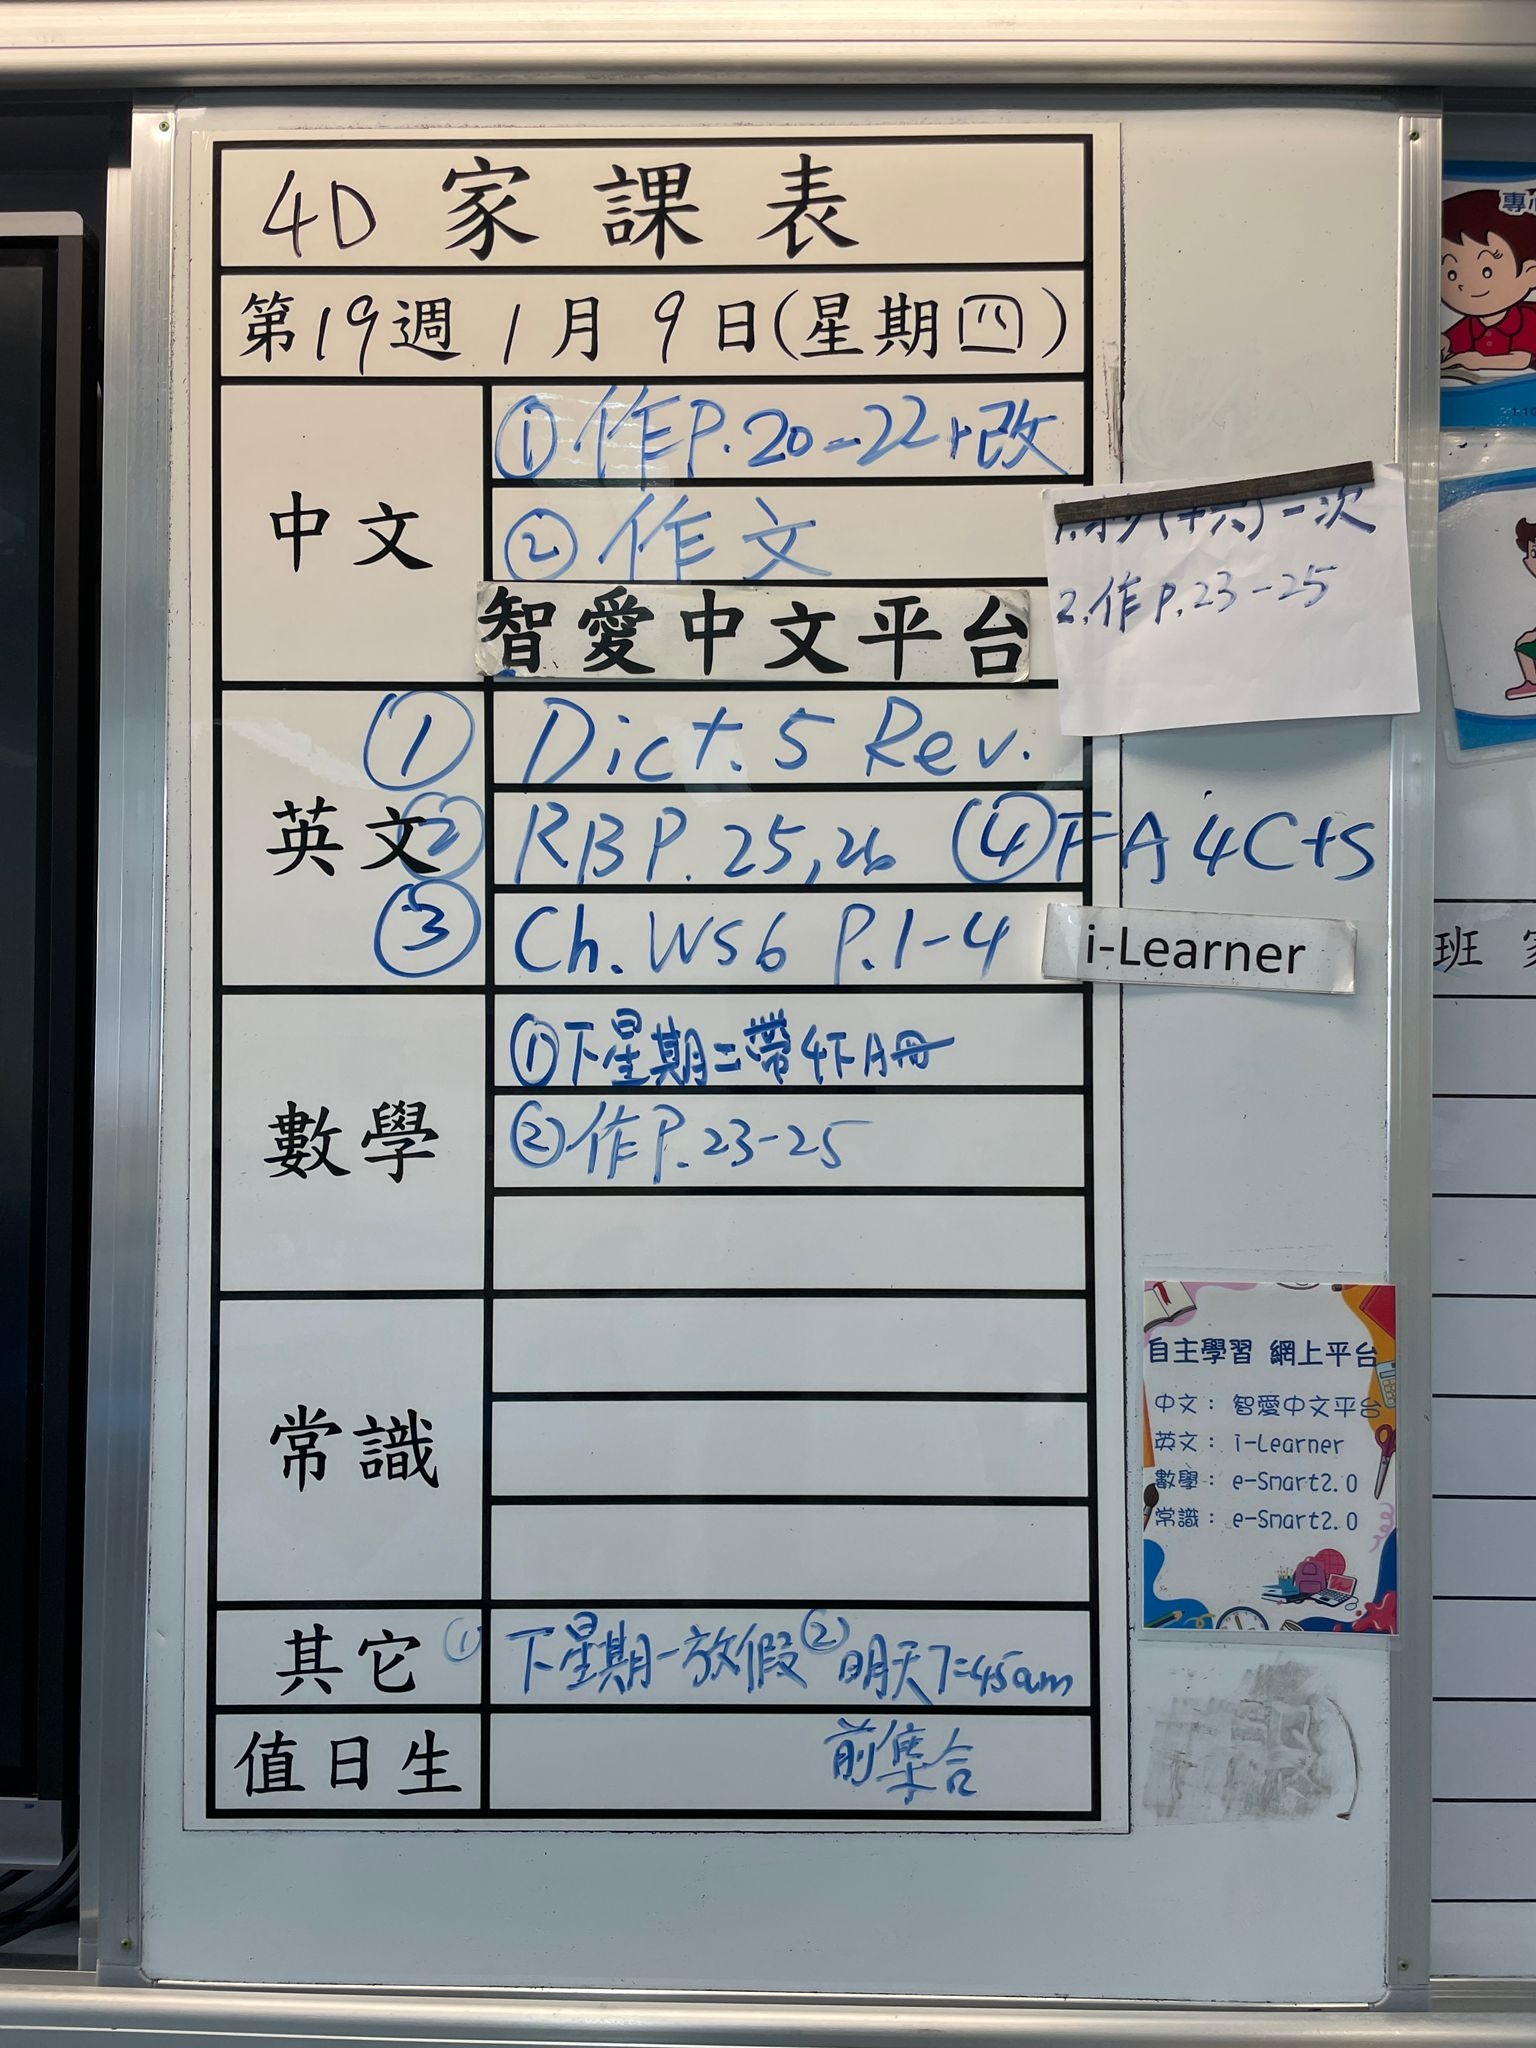 4D 家課表
第19週 1月9日(星期四)
中文
① 作P.20-22+改
② 作文
智愛中文平台
1.抄(十六)一次
2.作P.23-25
英文
① Dict. 5 Rev.
② RB P.25,26 ④ FA 4C+S
③ Ch. WS6 P.1-4
i-Learner
數學
① 下星期二帶4下A冊
② 作P.23-25
常識
其它
① 下星期一放假 ② 明天7:45am
前集合
值日生
自主學習 網上平台
中文： 智愛中文平台
英文： i-Learner
數學： e-Smart2.0
常識： e-Smart2.0
班